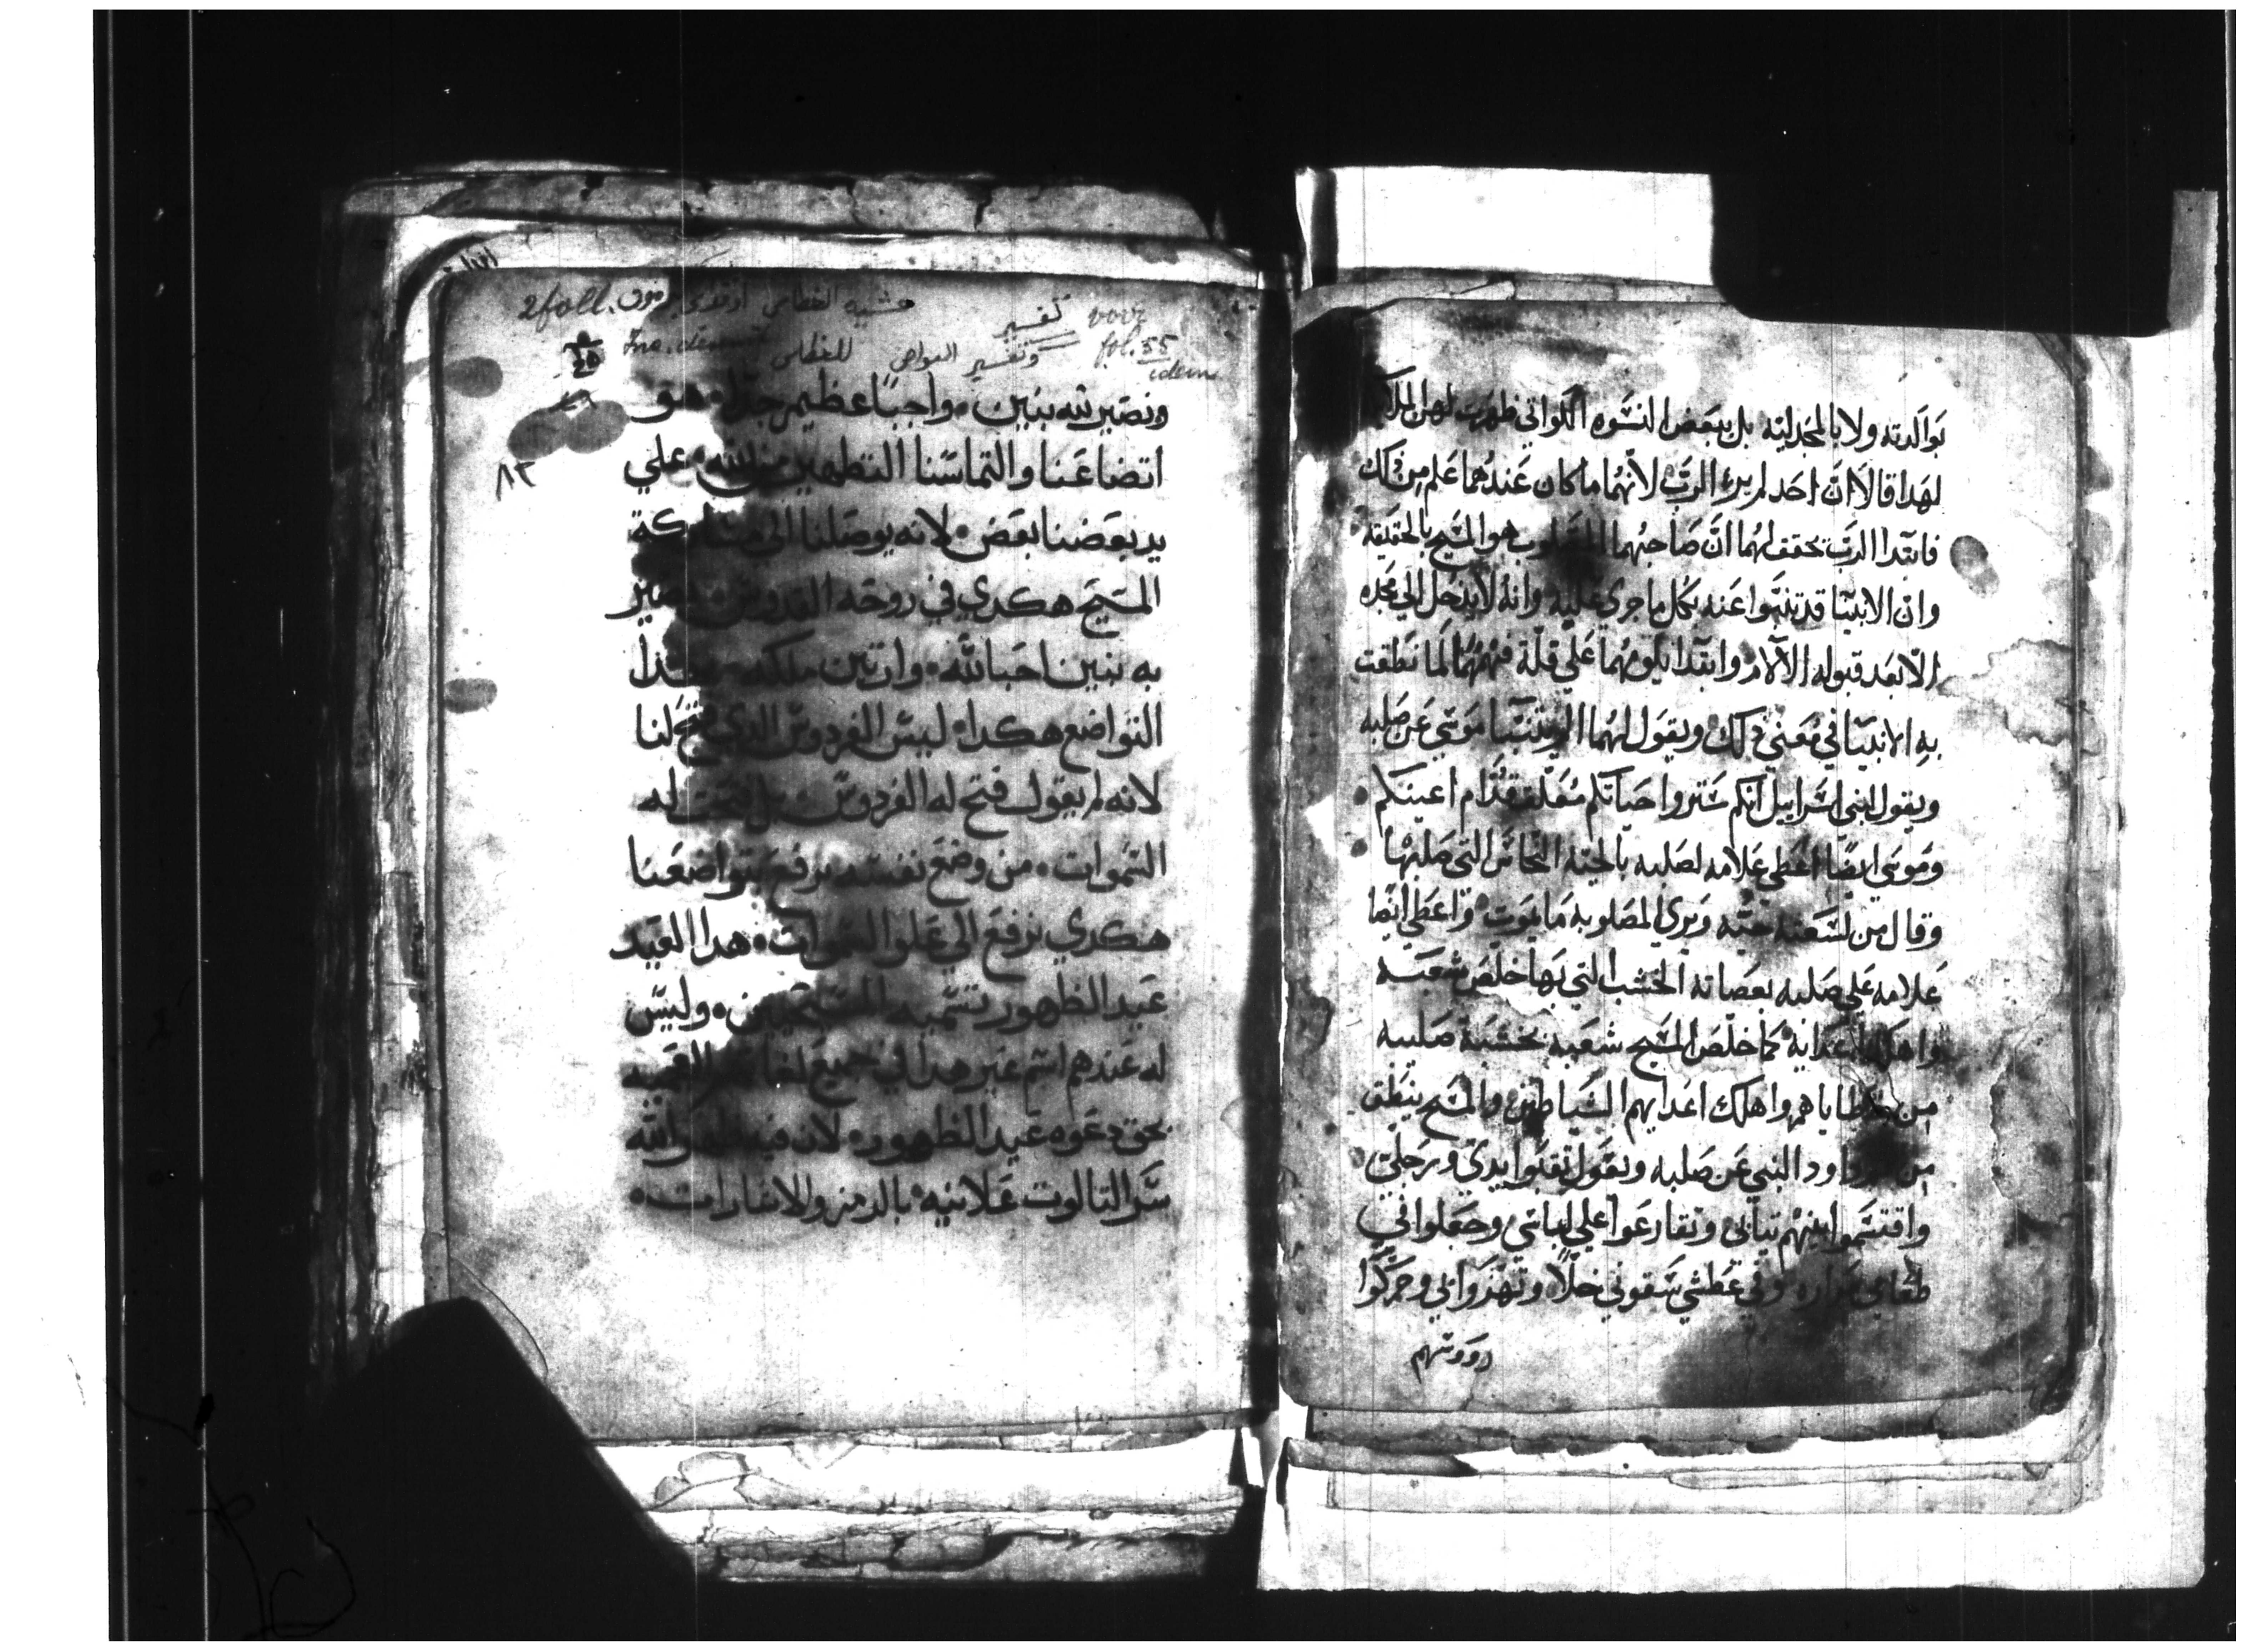 بوالدته ولا بالمجدليه بل ببعض النسوه اللواتي ظهرت لهن الملاكه
لهدا قالا ان احد لم يري الرب لانهما ما كان عندهما علم من دلك
فابتدا الرب تحقف لهما ان صاحبهما المصلوب هو المسيح بالحقيقه
وان الانبيا قد تنبوا عنه بكل ما جري عليه وانه لا يدخل الي مجده
الا بعد قبوله الالام وابتدا يلومهما علي قلة فهمهما لما نطقت
به الانبيا في معني دلك ويقول لهما الم يتنبيا موسي عن صلبه
ويقول لبني اسراييل انكم ستروا حياتكم معلقه قدام اعينكم
وموسي ايضا اعطي علامه لصلبه بالحيه النحاس التي صلبها
وقال من لسعته حيه ويري المصلوبه ما يموت واعطي ايضا
علامه علي صلبه بعصاته الخشب التي بها خلص شعبه
واهلك اعدايه كما خلص المسيح شعبه بخشبة صليبه
من خطاياهم واهلك اعدايهم الشياطين والمسيح ينطق
من داود النبي عن صلبه ويقول تقبوا يدي ورجلي
واقتسموا بينهم تيابي وتقارعوا علي لباسي وجعلوا في
طعامي مراره وفي عطشي سقوني خلا وتهزوا بي وحركوا
رووسهم
2 foll.
تفسير voir
وتفسير المواهي للغطاس fol. 55
idem
٨٢
ونصير له بنين واجبا عظيم جدا هو
اتضاعنا والتماسنا التطهير من الله علي
يد بعضنا بعض لانه يوصلنا الي مشاركة
المسيح هكدي في روحه القدوس ونصير
به بنين احبا لله وارتين ملكه
التواضع هكدا ليس الفردوس الدي فتح لنا
لانه لم يقول فتح له الفردوس بل فتحت له
السموات من وضع نفسه يرفع بتواضعنا
هكدي نرفع الي علوا السموات هدا العيد
عيد الظهور تسميه المسيحيين وليس
له عندهم اسم غير هدا في جميع لغاتهم
بحق دعوه عيد الظهور لان فيه
سر التالوت علانيه بالرمز والاشارات